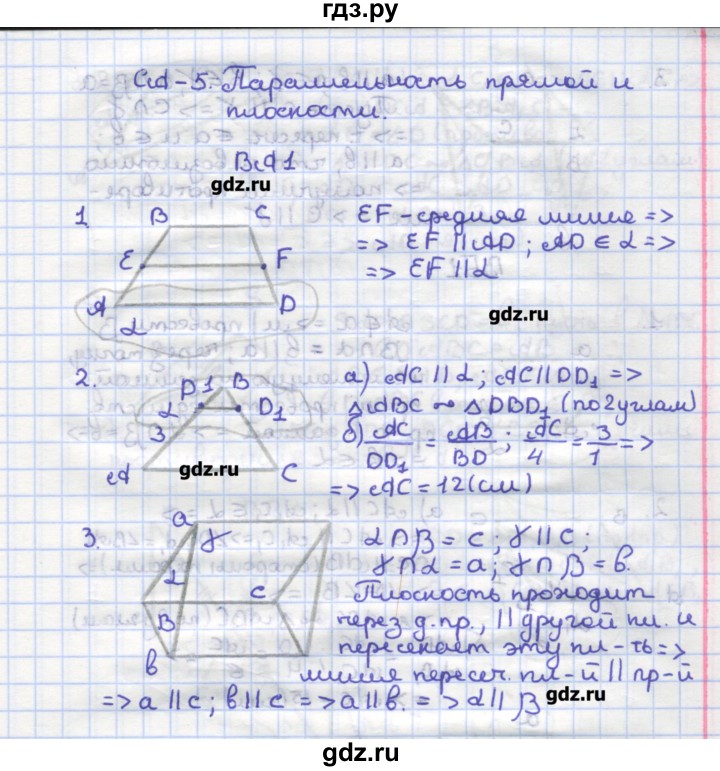 гдз.ру
СА-5. Параллельность прямой и
плоскости.
ВА1
gdz.ru
1
B C
E F
A D
α
EF - средняя линия =>
=> EF || AD ; AD ∈ α =>
=> EF || α
gdz.ru
2.
D 1 B
α D1
3
A C
gdz.ru
а) AC || α ; AC || DD1 =>
△ABC ~ △DBD1 (по 2 углам)
б) AC/DD1 = AB/BD ; AC/4 = 3/1 =>
=> AC = 12 (см)
3.
a γ
α
c
β
b
α ∩ β = c ; γ || c ;
γ ∩ α = a ; γ ∩ β = b.
Плоскость проходит
через д. пр., || другой пл. и
пересекает эту пл-ть =>
линия пересеч. пл-й || пр-й
=> a || c ; b || c => a || b. => α || β
gdz.ru
gdz.ru